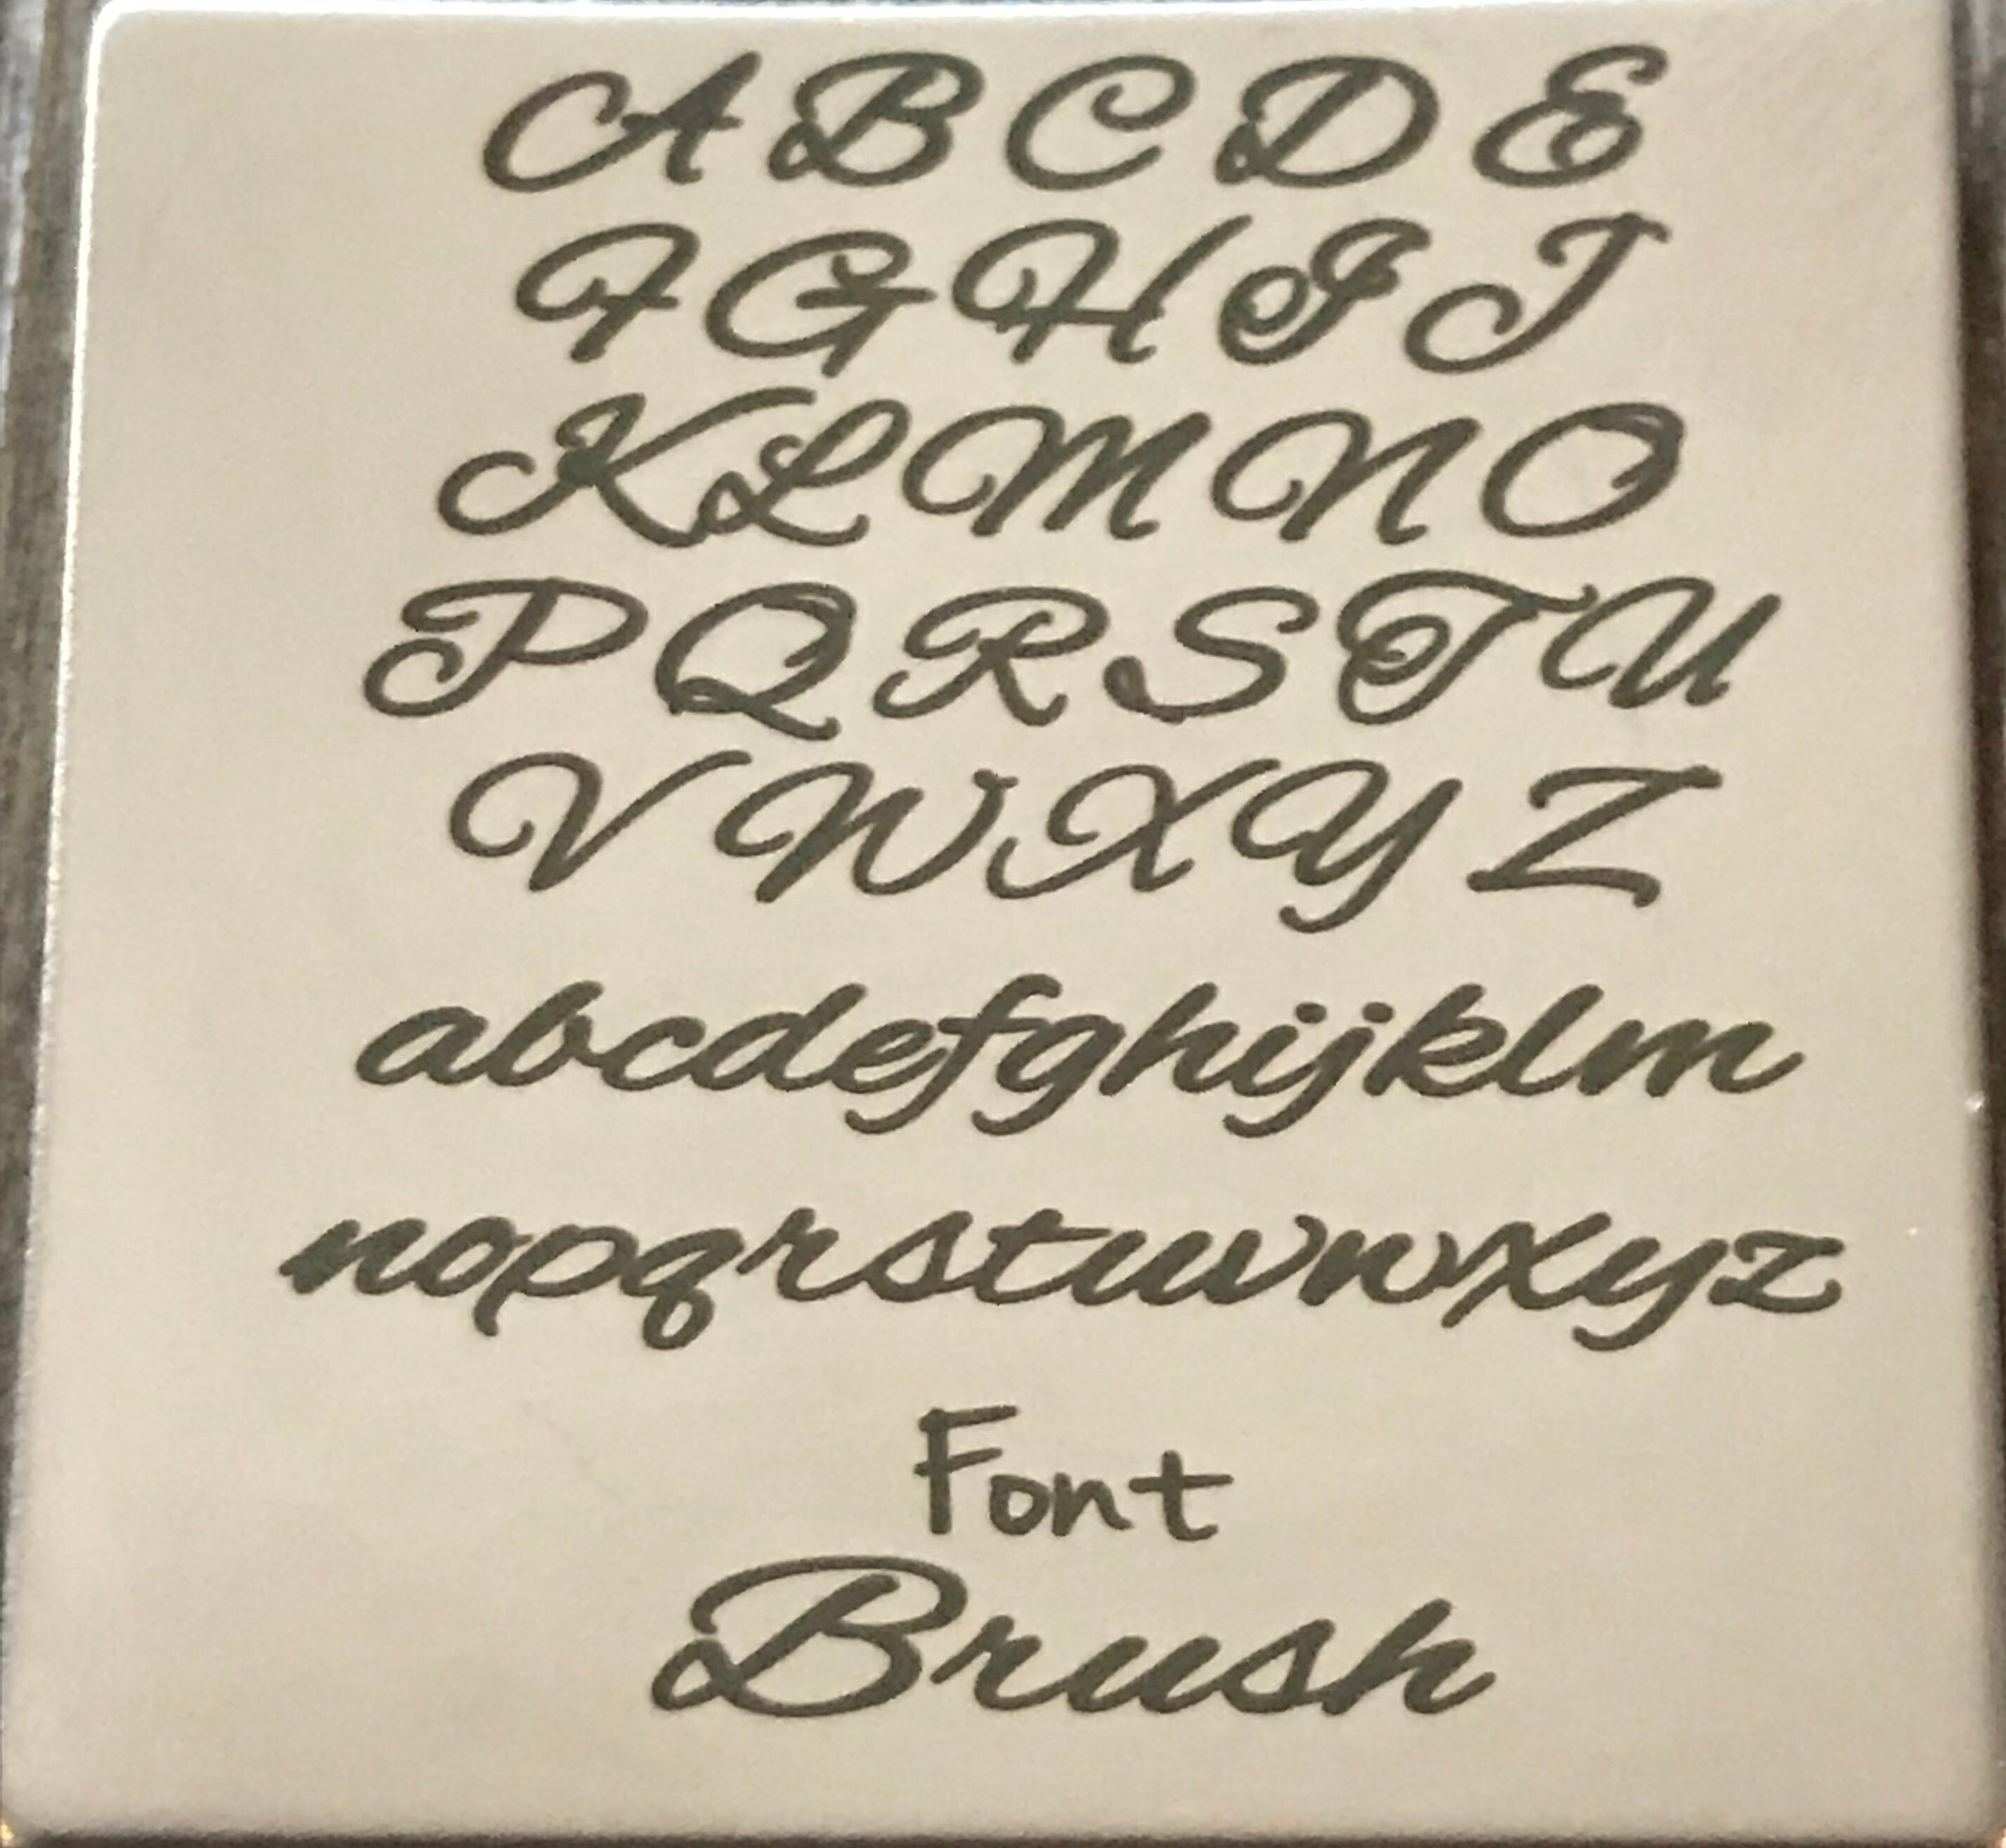 A B C D E
F G H I J
K L M N O
P Q R S T U
V W X Y Z
abcdefghijklm
nopqrstuvwxyz
Font
Brush